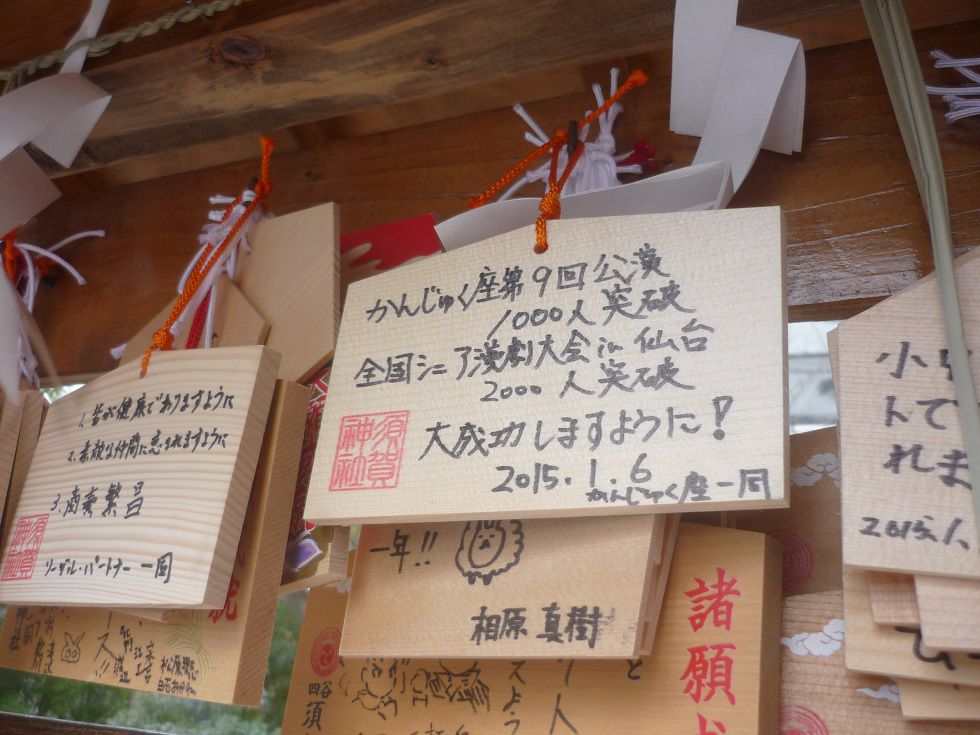 かんじゅく座第9回公演
1000人突破
全国シニア演劇大会in仙台
2000人突破
大成功しますように!
2015.1.6
かんじゅく座一同
須賀
神社
1.皆が健康でありますように
2.素敵な仲間に恵まれますように
3.商売繁昌
リーガル・パートナー 一同
須賀
神社
一年!!
相原真樹
諸願
四谷
須
小
トて
れま
2015.1.